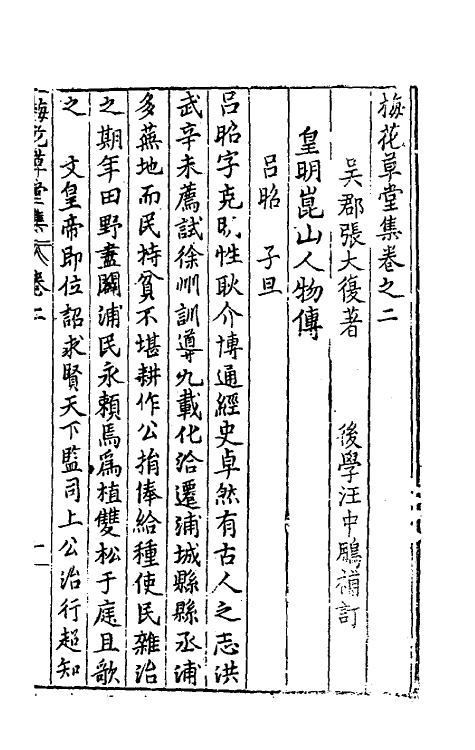 梅花草堂集卷之二
吳郡張大復著　　後學汪中鵬補訂
皇明崑山人物傳
呂昭　子旦
呂昭字克明性耿介博通經史卓然有古人之志洪
武辛未薦試徐州訓導九載化洽遷浦城縣縣丞浦
多蕪地而民持貧不堪耕作公捐俸給種使民雜治
之期年田野盡闢浦民永賴焉爲植雙松于庭且歌
之　文皇帝即位詔求賢天下監司上公治行超知
梅花草堂集　卷二　一